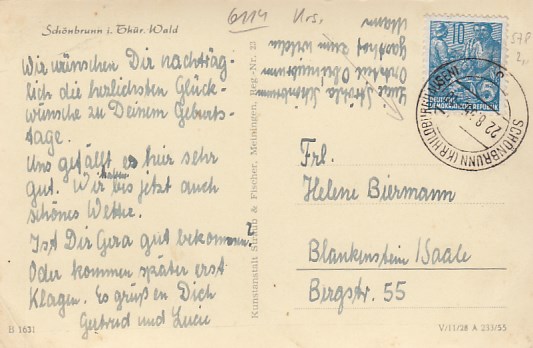 Schönbrunn i. Thür. Wald
Wir wünschen Dir nachträg-
lich die herzlichsten Glück-
wünsche zu Deinem Geburts-
tage.
Uns gefällt es hier sehr
gut. Wir haben bis jetzt auch
schönes Wetter.
Ist Dir Gera gut bekommen?
Oder kommen später erst
Klagen. Es grüßen Dich
Gertrud und Lucie
B 1631
Kunstanstalt Straub & Fischer, Meiningen, Reg.-Nr. 23
6114
Schönbrunn
Gasthof zum wilden
Mann
10
5
DEUTSCHE
DEMOKRATISCHE REPUBLIK
SCHÖNBRUNN (KR HILDBURGHAUSEN)
22.8.
Frl.
Helene Biermann
Blankenstein / Saale
Bergstr. 55
V/11/28 A 233/55